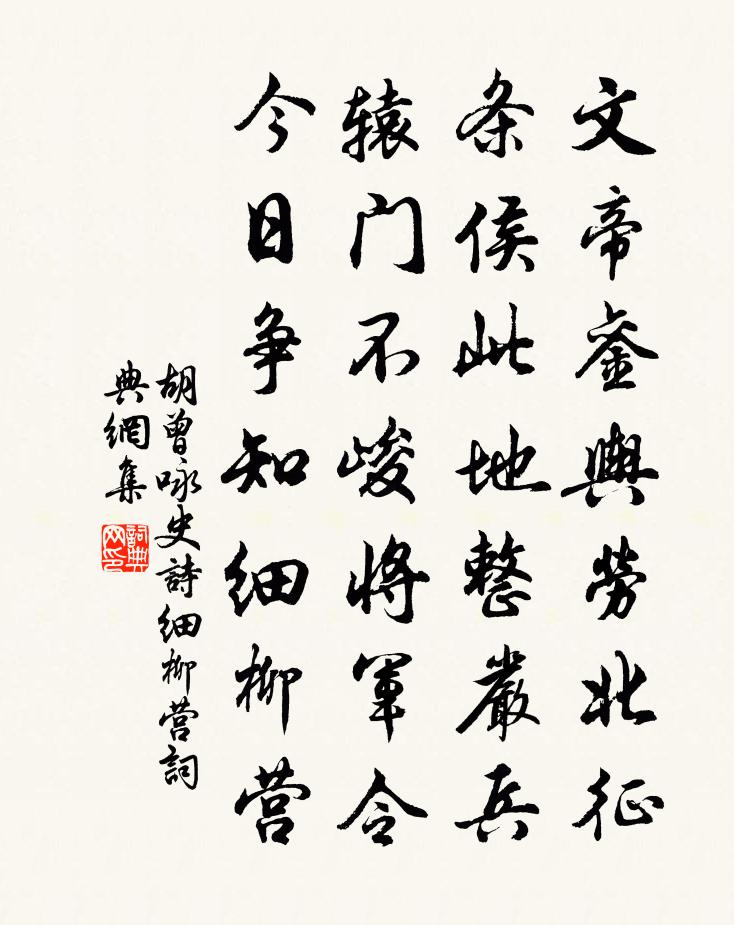 文帝銮輿劳北征
条侯此地整嚴兵
辕门不峻将軍令
今日争知细柳营
胡曾咏史詩细柳营詞
典網集
詞典网印